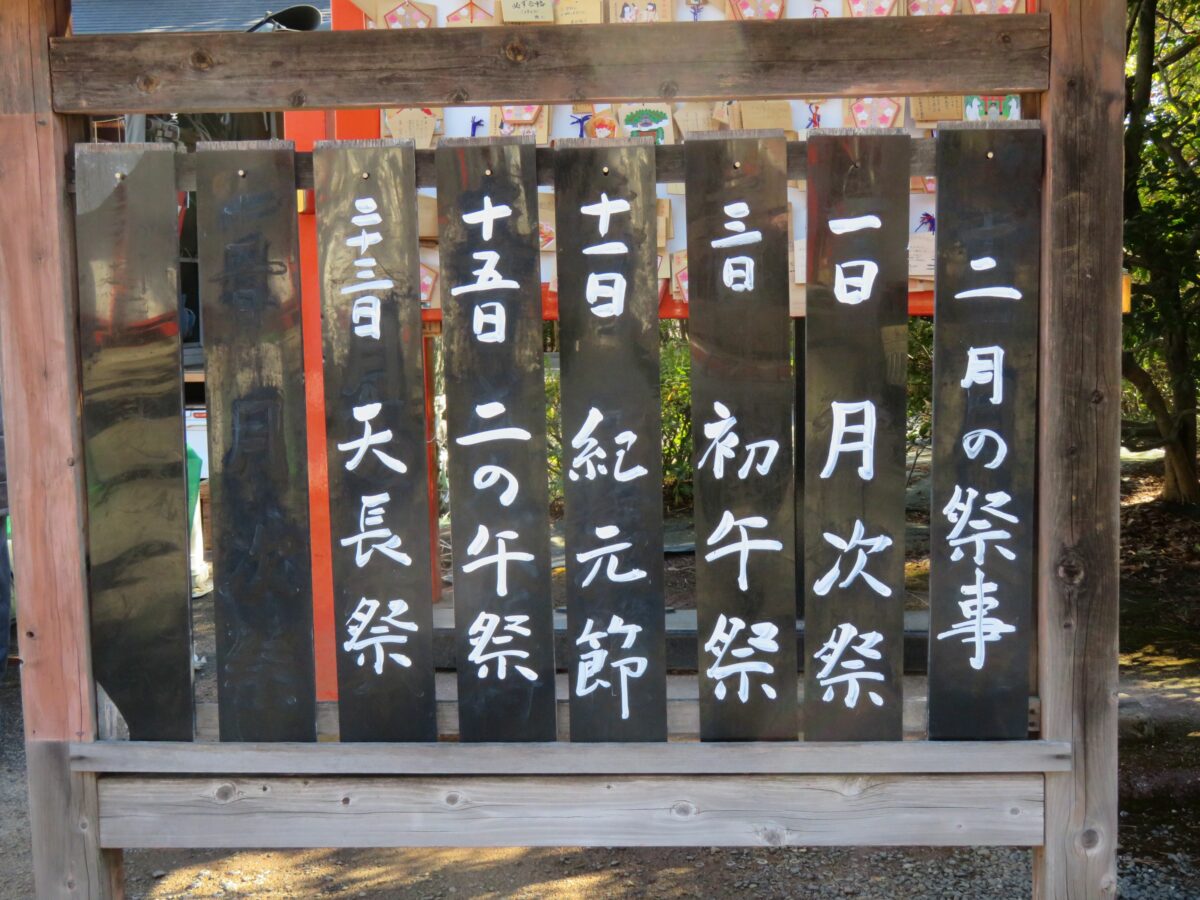 二月の祭事
一日 月次祭
三日 初午祭
十一日 紀元節
十五日 二の午祭
二十三日 天長祭